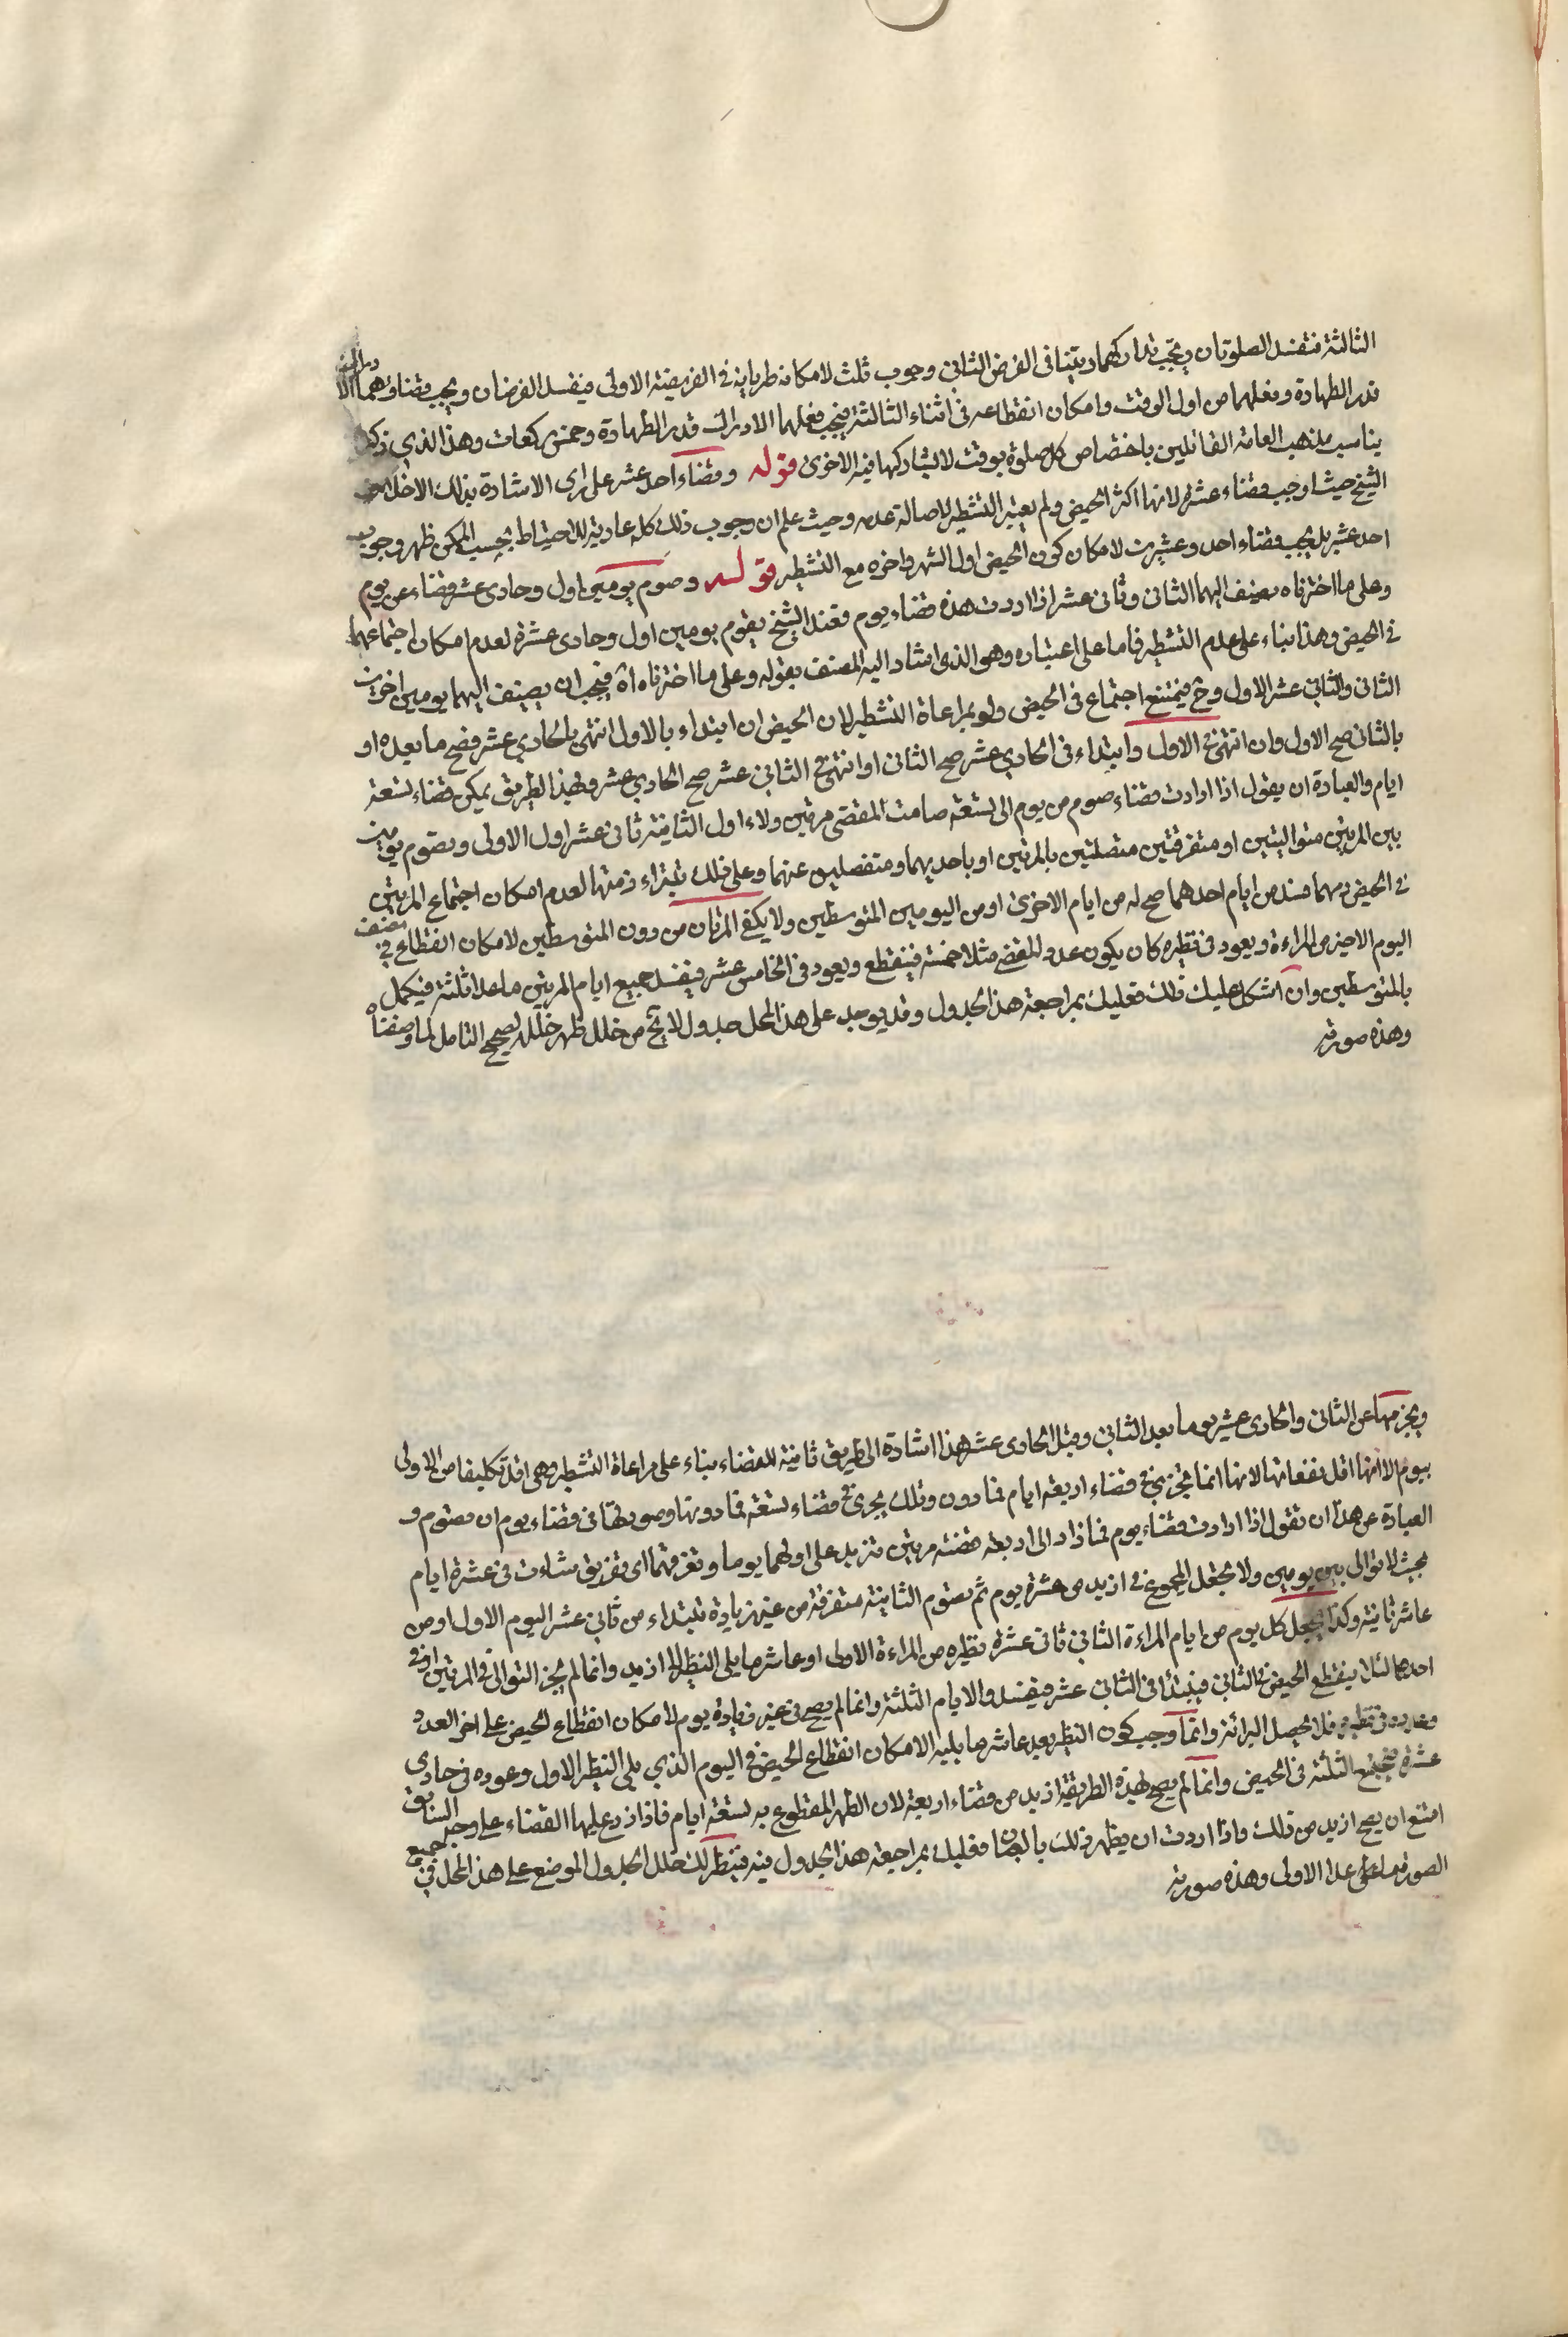 الثالثة فتفسد الصلوتان ويجب تداركهما ويتبنا في الفرض الثاني وجوب ثلث لامكان طريانه في الفريضة الاولى فيفسد الفرضان ويجب قضاؤهما الا
قدر الطهارة وفعلهما من اول الوقت وامكان انقطاعه في اثناء الثالثة فيجب فعلهما الادراك قدر الطهارة وخمس ركعات وهذا الذي ذكره
يناسب مذهب العامة القائلين باختصاص كل صلوة بوقت لا تشاركها فيه الاخرى قوله وقضاء احد عشر على رأي الاشارة بذلك الاخلاف
الشيخ حيث اوجب قضاء عشرة لانها اكثر الحيض ولم يعتبر التشطير لاصالة عدمه وحيث علم ان وجوب ذلك كله عاد يه للاحتياط بحسب الممكن ظهر وجوب
احد عشر بل يجب قضاء احد وعشرين لامكان كون الحيض اول الشهر واخره مع التشطير قوله وصوم يومين اول وحادى عشر قضاء عن يوم
وعلى ما اخترناه يضيف اليهما الثانى وثانى عشر اذا اردت هذه قضاء يوم فعند الشيخ يقوم يومين اول وحادى عشرة لعدم امكان اجتماعهما
في الحيض وهذا بناء على عدم التشطير فاما على اعتباره وهو الذى اشار اليه المصنف بقوله وعلى ما اخترناه اه فيجب ان يضيف اليهما يومين اخرين
الثانى والثاني عشر الاول وح فيمتنع اجتماع في الحيض ولو بمراعاة التشطير لان الحيض ان ابتداء بالاول انتهى بالحادي عشر فصح ما بعده او
بالثانى صح الاول وان انتهى في الاول وابتداء في الحادي عشر صح الثانى او انتهى في الثانى عشر صح الحادي عشر وبهذا الطريق يمكن قضاء تسعة
ايام والعبادة ان يقول اذا ارادت قضاء صوم من يوم الى تسعة صامت المقضى مرتين ولاء اول الثانية ثانى عشر اول الاولى وتصوم يومين
بين المرتين متواليتين او متفرقتين متصلتين بالمرتين او باحديهما ومنفصلين عنهما وعلى ذلك تبتداء ذمتها لعدم امكان اجتماع المرتين
في الحيض ومهما فسد من ايام احدهما صح له من ايام الاخرى او من اليومين المتوسطين ولا يكفى المرتان من دون المتوسطين لامكان انقطاع في
اليوم الاخير من المراءة ويعود في نظيره كان يكون عدد المقضى مثلا خمسة فينقطع ويعود في الخامس عشر فيفسد جميع ايام المرتين ما عدا ثلثة فيكمل
بالمتوسطين وان اشكل عليك ذلك فعليك بمراجعة هذا الجدول وقد يوجد على هذا المحل جدول لا يخ من خلل ظهر خلله لصحيح التامل لما وصفناه
وهذه صورته
ويجزيها عن الثانى والحادى عشر يوما بعد الثانى وقبل الحادى عشر هذا اشارة الى طريق ثانية للقضاء بناء على مراعاة التشطير وهى اقل تكليفا من الاولى
بيوم الا انها اقل نفعا منها لانها انما تجزى في قضاء اربعة ايام فما دون وتلك يجرى في قضاء تسعة فما دونها وصورتها في قضاء يوم ان تصوم و
العبادة عن هذا ان تقول اذا ارادت قضاء يوم فما زاد الى اربعة قضته مرتين تزيد على اولهما يوما وتفرقهما اى تفريق شاءت في عشرة ايام
بحيث لا توالى بين يومين ولا تجعل المجموع في ازيد من عشرة يوم ثم تصوم الثانية متفرقة من غير زيادة تبتداء من ثانى عشر اليوم الاول او من
عاشر ثانية وكذا تجعل كل يوم من ايام المراءة الثانى ثانى عشرة نظيره من المراءة الاولى او عاشر ما يلى النظير لا ازيد وانما لم يجز التوالى في المرتين او في
احدهما لئلا ينقطع الحيض في الثانى فيبتدأ في الثانى عشر فيفسد والايام الثلثة وانما لم يصح في غير زيادة يوم لامكان انقطاع الحيض على اخر العدد
في نظيره فلا يحصل البرائة وانما وجب كون النظير بعد عاشر ما يليه لامكان انقطاع الحيض في اليوم الذي يلى النظير الاول وعوده في حادى
عشرة فيجتمع الثلثة في الحيض وانما لم يصح بهذه الطريقة ازيد من قضاء اربعة لان الطهر المقطوع به تسعة ايام فاذا زرع عليها القضاء على وجه السابق
امتنع ان يصح ازيد من ذلك واذا اردت ان يظهر ذلك بالعيان فعليك بمراجعة هذا الجدول فيه فتنظر لك خلل الجدول الموضع على هذا المحل في جميع
الصور ما عدا الاولى وهذه صورته